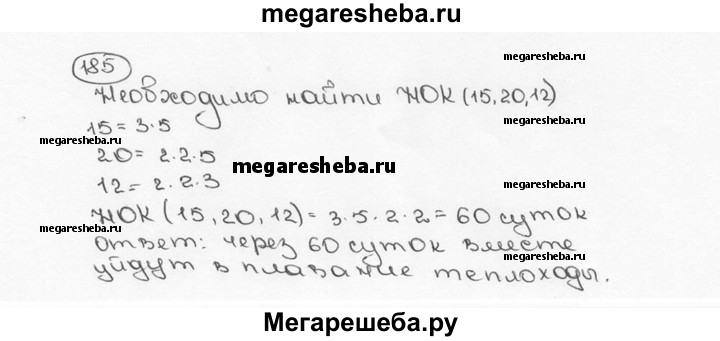 megaresheba.ru
185
Необходимо найти НОК (15,20,12)
megaresheba.ru
15 = 3·5
megaresheba.ru
20 = 2·2·5
megaresheba.ru
12 = 2·2·3
megaresheba.ru
НОК (15,20,12) = 3·5·2·2 = 60 суток
megaresheba.ru
ответ: через 60 суток вместе
megaresheba.ru
уйдут в плавание теплоходы.
Мегарешеба.ру